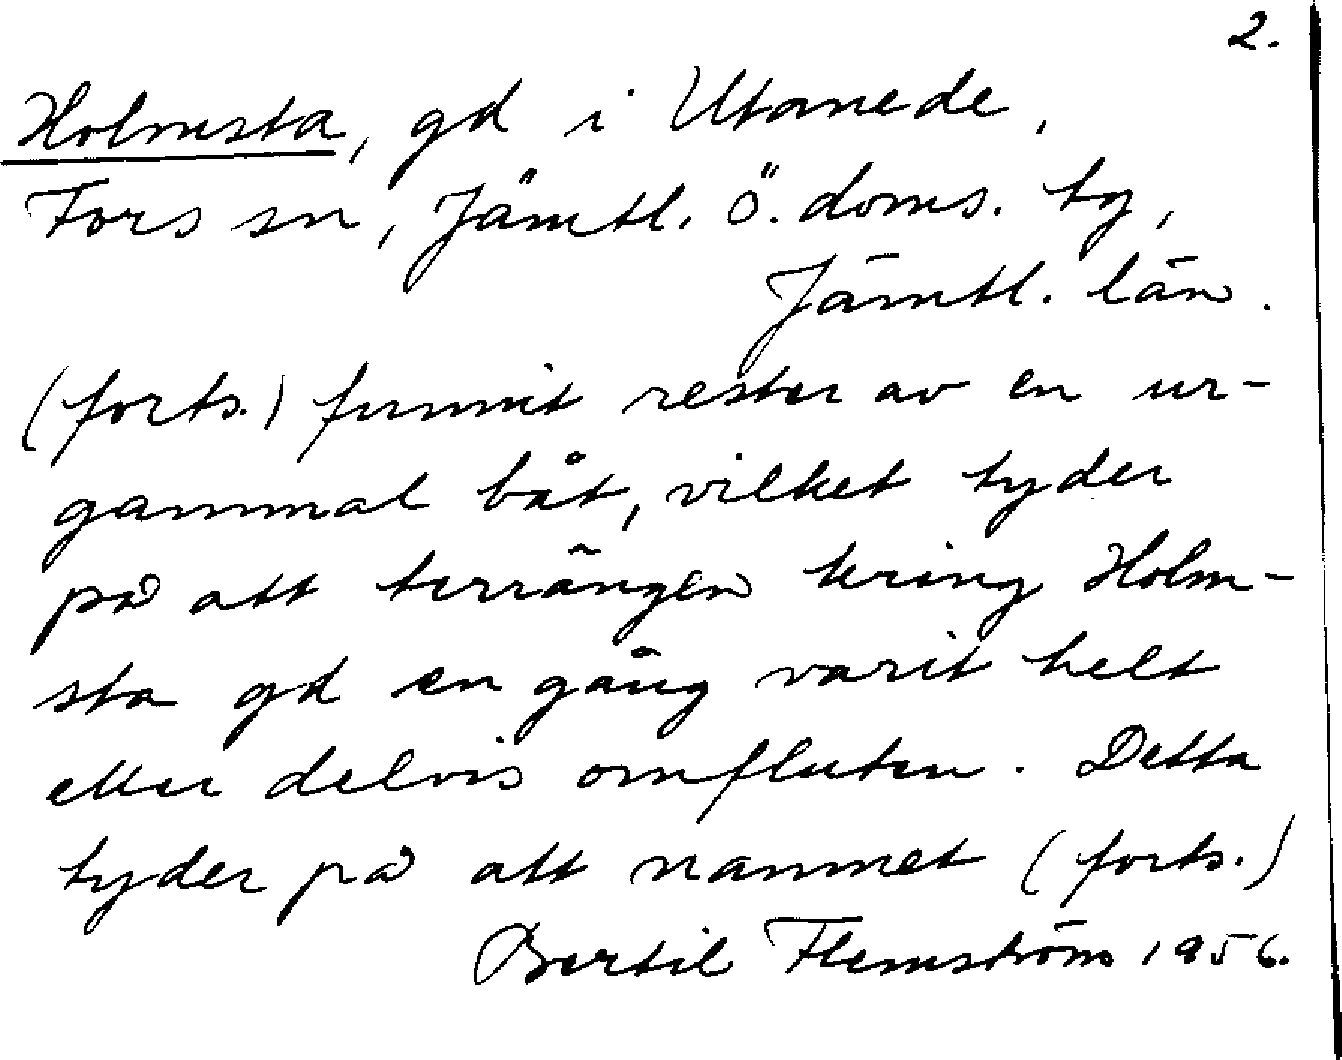 2.
Holmsta, gd i Utanede,
Fors sn, Jämtl. ö. doms. tg,
Jämtl. län.
(forts.) funnit rester av en ur-
gammal båt, vilket tyder
på att terrängen kring Holm-
sta gd en gång varit helt
eller delvis omfluten. Detta
tyder på att namnet (forts.)
Bertil Flemström 1956.